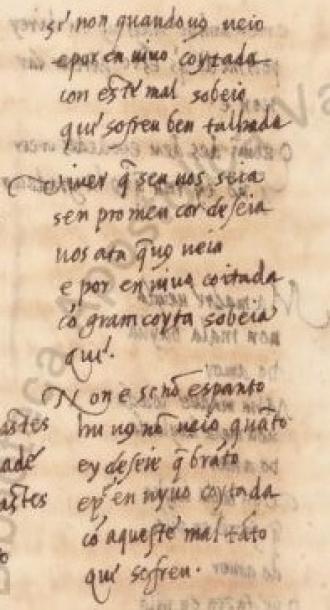 se non quando uos ueio
e por en uiuo coytada
con este mal sobeio
que sofreu ben talhada
uiuer q̃ sen uos seia
sen pro meu cor deseia
uos ata q̃ uos ueia
e por en uiuo coitada
cõ gram coyta sobeia
que.
Non e se nõ espanto
hu uos nõ ueio quãto
ey deseie q̃brãto
e por en uyuo coytada
cõ aqueste mal tãto
que sofreu.
astes
ade
astes